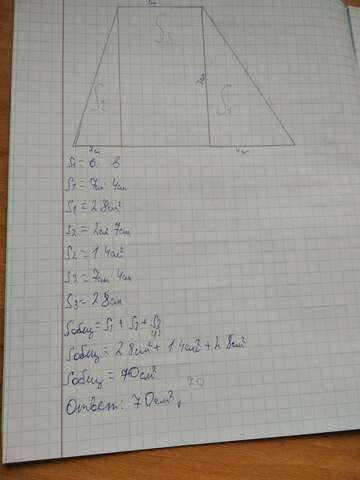 S3
S2
S1
2см
4см
S1 = a · b
S1 = 7см · 4см
S1 = 28см²
S2 = 2см · 7см
S2 = 14см²
S3 = 7см · 4см
S3 = 28см
Sобщ = S1 + S2 + S3
Sобщ = 28см² + 14см² + 28см²
Sобщ = 70см²
70
Ответ: 70см².